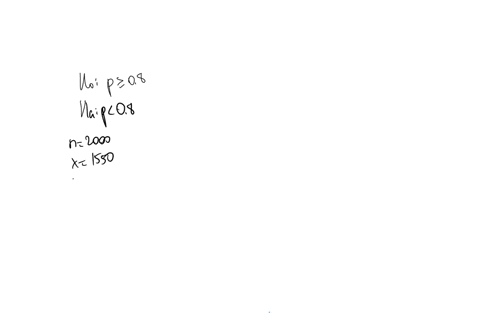 H₀: p ≥ 0.8
Hₐ: p < 0.8
n = 2000
x = 1550